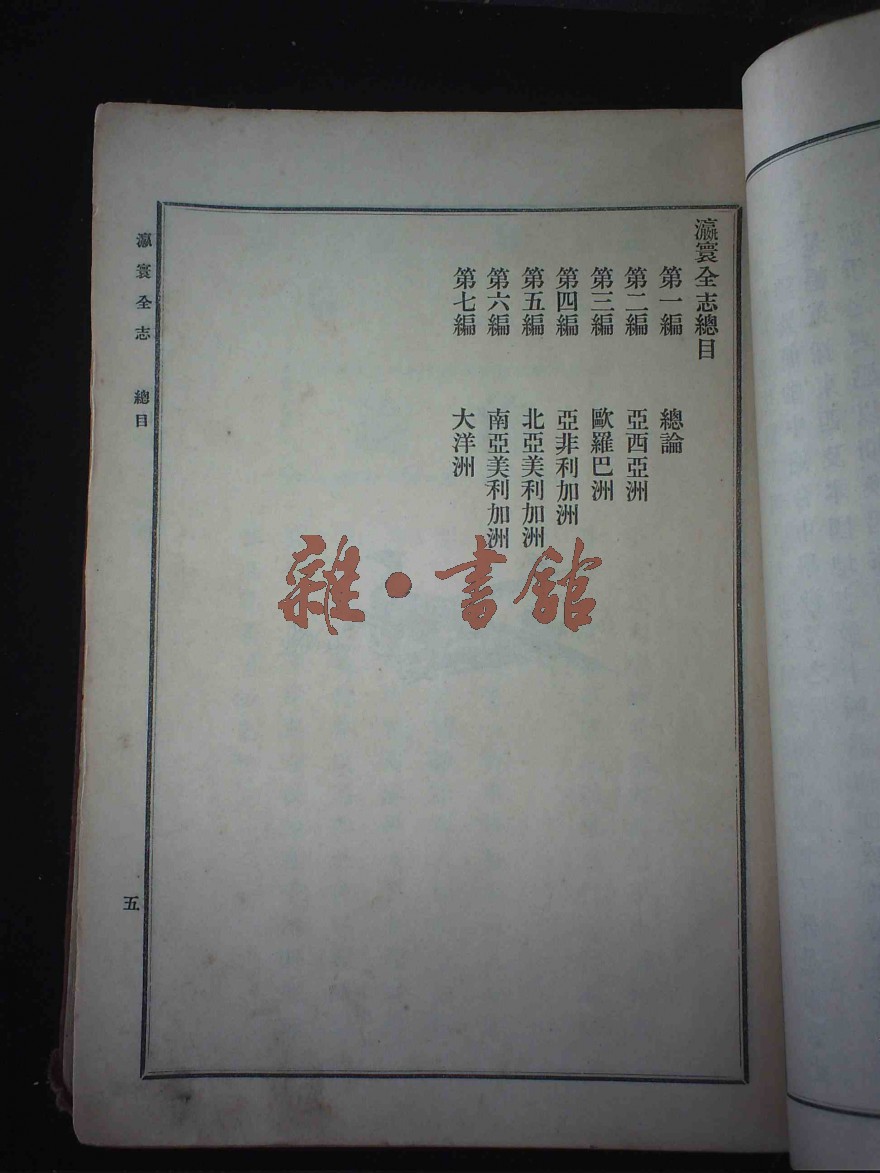 瀛寰全志總目
第一編　總論
第二編　亞西亞洲
第三編　歐羅巴洲
第四編　亞非利加洲
第五編　北亞美利加洲
第六編　南亞美利加洲
第七編　大洋洲
瀛寰全志　總目
五
雜·書館